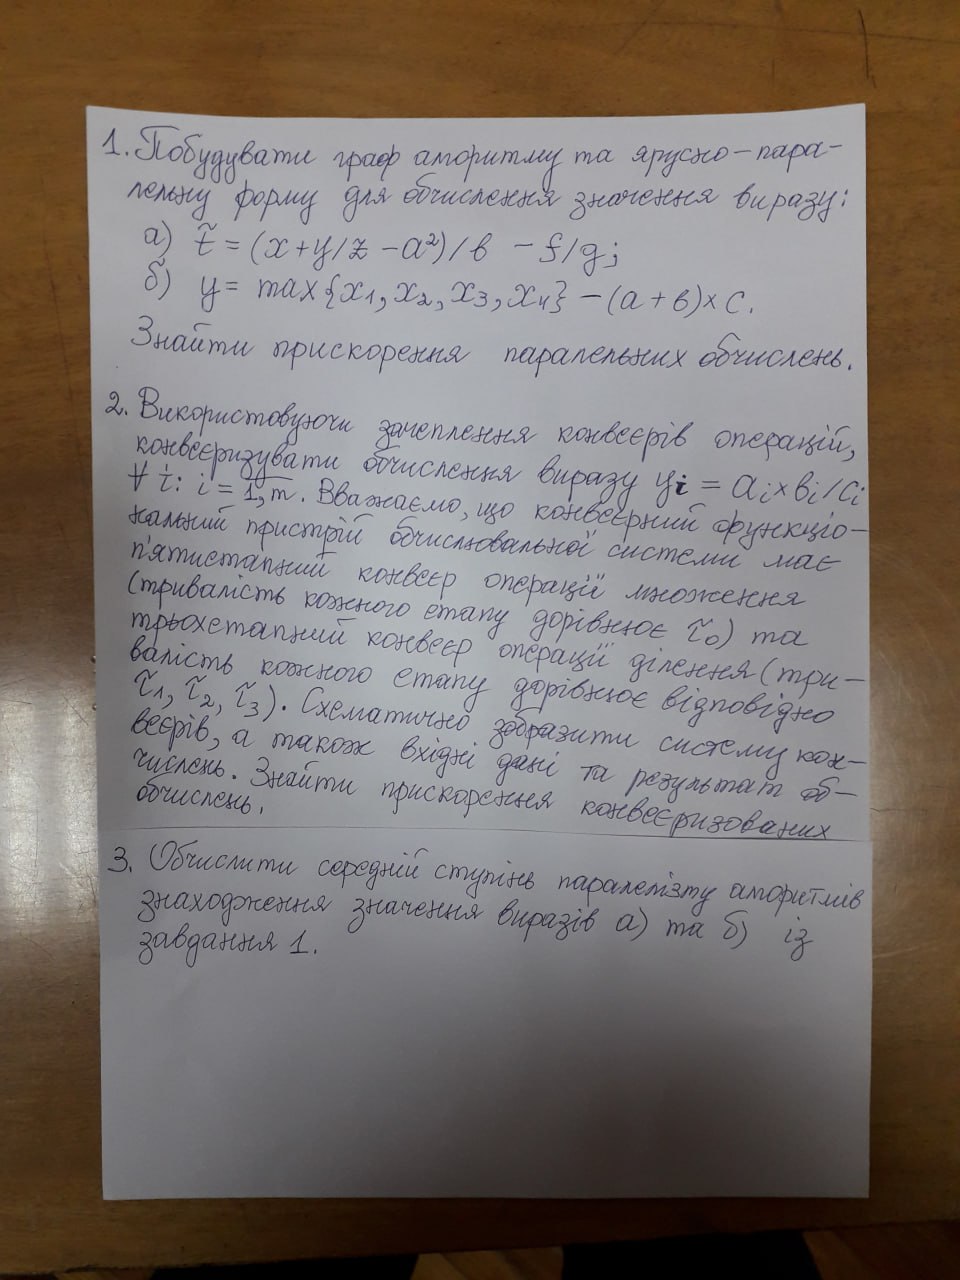 1. Побудувати граф алгоритму та ярусно-пара-
лельну форму для обчислення значення виразу:
а) t̃ = (x+y/z - a²)/b - f/g;
б) y = max{x₁, x₂, x₃, x₄} - (a + b)×c.
Знайти прискорення паралельних обчислень.
2. Використовуючи зачеплення конвеєрів операцій,
конвеєризувати обчислення виразу yᵢ = aᵢ×bᵢ/cᵢ
∀ i: i = 1,m. Вважаємо, що конвеєрний функціо-
нальний пристрій обчислювальної системи має
п'ятиетапний конвеєр операції множення
(тривалість кожного етапу дорівнює τ̃₀) та
трьохетапний конвеєр операції ділення (три-
валість кожного етапу дорівнює відповідно
τ̃₁, τ̃₂, τ̃₃). Схематично зобразити систему кон-
веєрів, а також вхідні дані та результат об-
числень. Знайти прискорення конвеєризованих
обчислень.
3. Обчислити середній ступінь паралелізму алгоритмів
знаходження значення виразів а) та б) із
завдання 1.